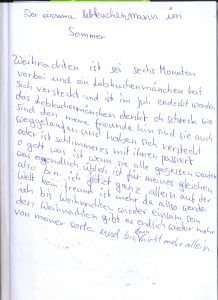 Der einsame Lebkuchenmann im
Sommer
Weihnachten ist sei sechs Monaten
vorbei und ein Lebkuchenmänchen hat
sich versteckt und ist im Juli endeckt worden
das Lebkuchenmänchen denkt oh schreck wo
sind den meine freunde hin sind sie auch
weggelaufen und haben sich versteckt
oder ist schlimmeres mit ihnen passiert
o gott was ist wenn sie alle gegessen worden
was eigendlich üblich ist für meines gleichen
also bin ich jetzt ganz allein auf der
Welt kein freund ist mehr da also werde
ich bis Weihnachten wieder einsam sein
den Weihnachten gibt es endlich wieder mehr
von meiner sorte und bin nicht mehr allein